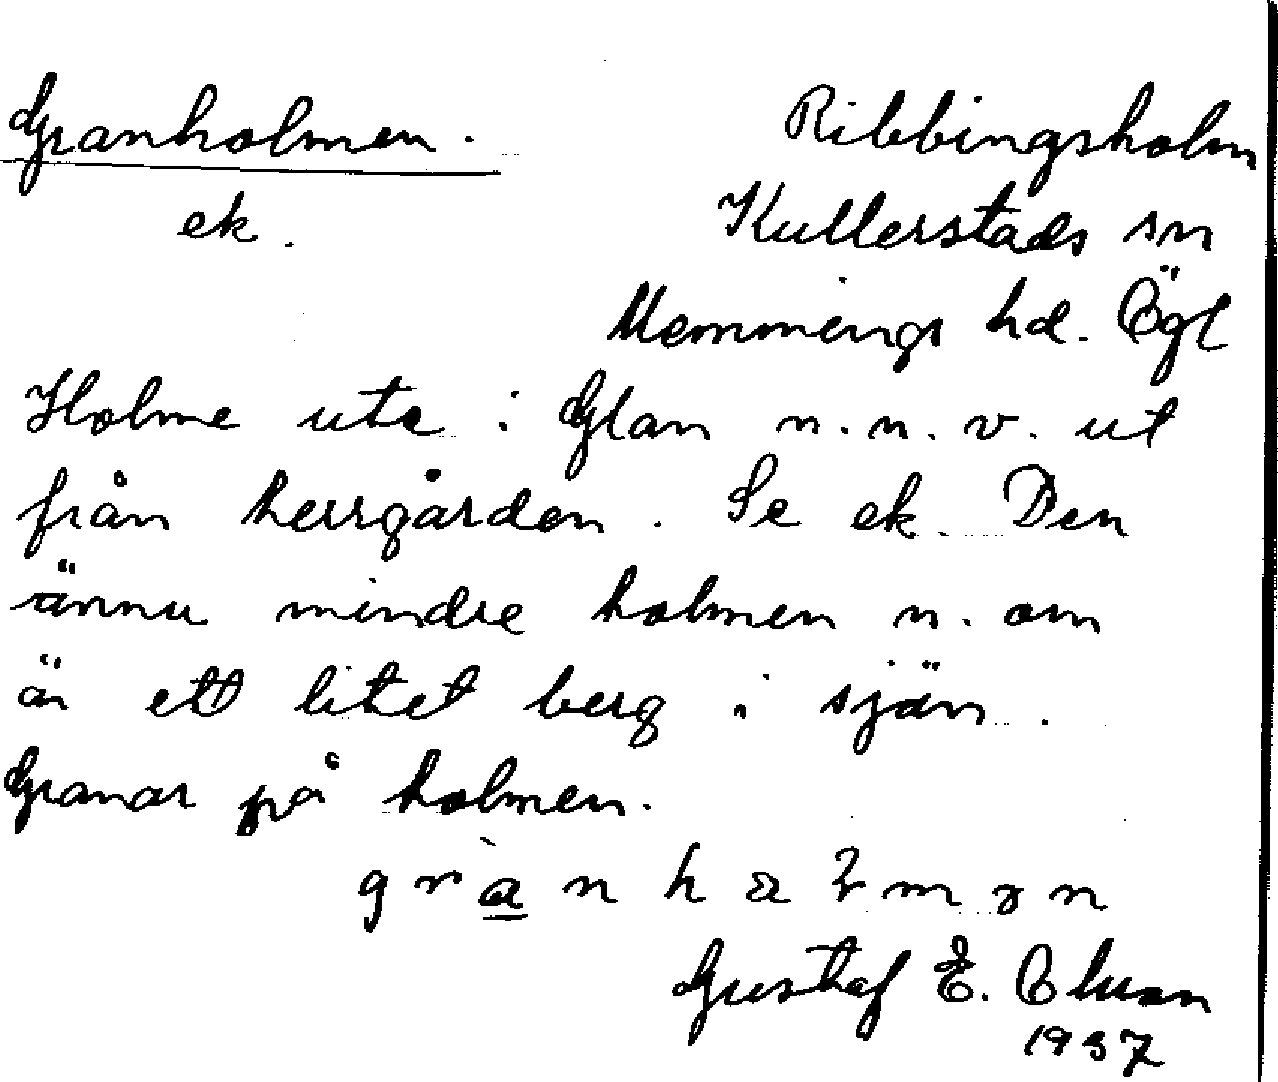 Granholmen.
Ribbingsholm
ek.
Kullerstads sn
Memmings hd. Ögl
Holme ute i Glan n.n.v. ut
från herrgården. Se ek. Den
ännu mindre holmen n. om
är ett litet berg i sjön.
Granar på holmen.
Gustaf E.
1937